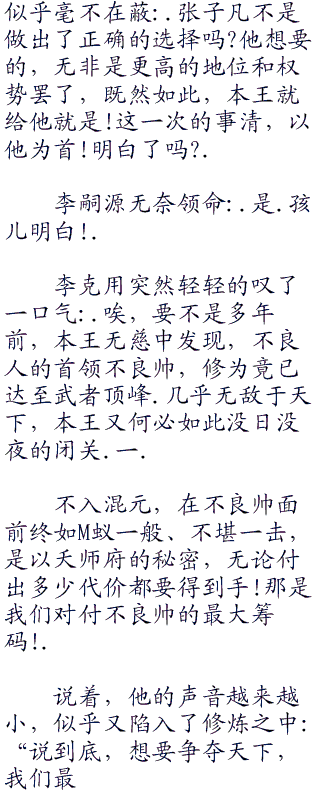 似乎毫不在蔽:.张子凡不是
做出了正确的选择吗?他想要
的，无非是更高的地位和权
势罢了，既然如此，本王就
给他就是!这一次的事清，以
他为首!明白了吗?.
李嗣源无奈领命:.是.孩
儿明白!.
李克用突然轻轻的叹了
一口气:.唉，要不是多年
前，本王无慈中发现，不良
人的首领不良帅，修为竟已
达至武者顶峰.几乎无敌于天
下，本王又何必如此没日没
夜的闭关.一.
不入混元，在不良帅面
前终如M蚁一般、不堪一击，
是以天师府的秘密，无论付
出多少代价都要得到手!那是
我们对付不良帅的最大筹
码!.
说着，他的声音越来越
小，似乎又陷入了修炼之中:
“说到底，想要争夺天下，
我们最